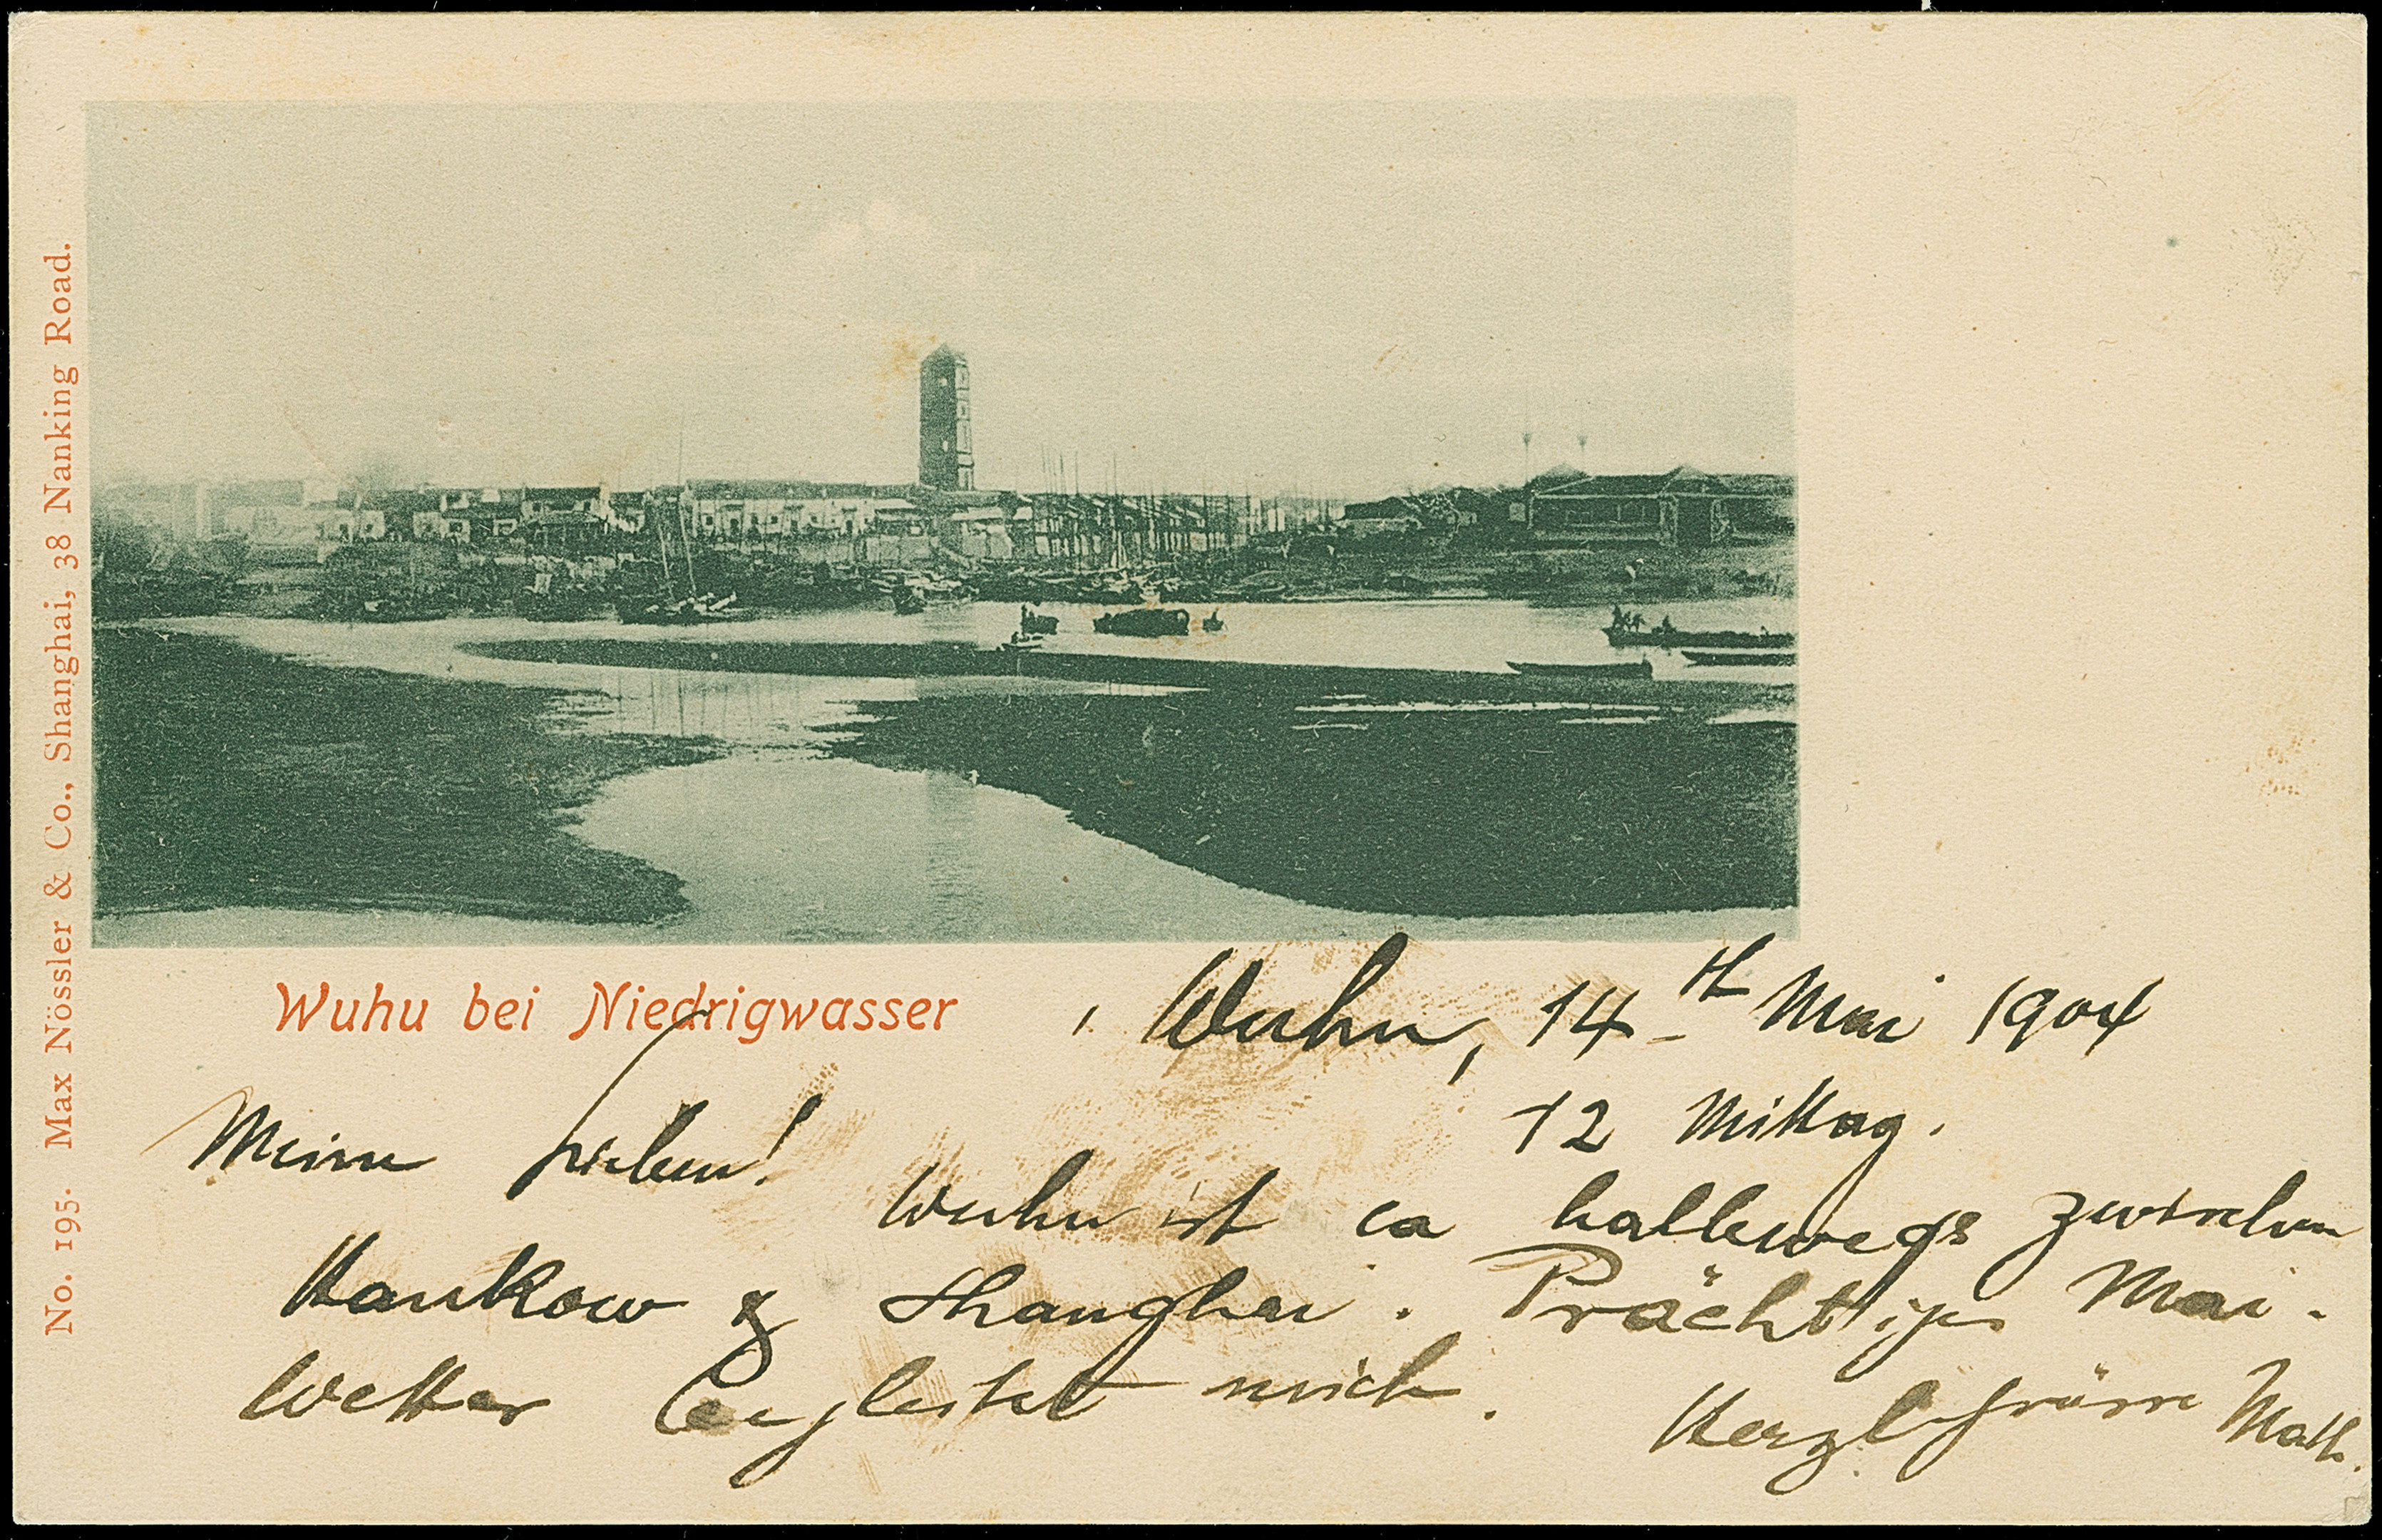 No. 195. Max Nössler & Co., Shanghai, 38 Nanking Road.
Wuhu bei Niedrigwasser
Wuhu, 14th Mai 1904
12 Mittag.
Meine Lieben!
Wuhu ist ca halbwegs zwischen
Hankow & Shanghai. Prächtiges Mai-
Wetter begleitet mich.
Herzl Grüsse Math.